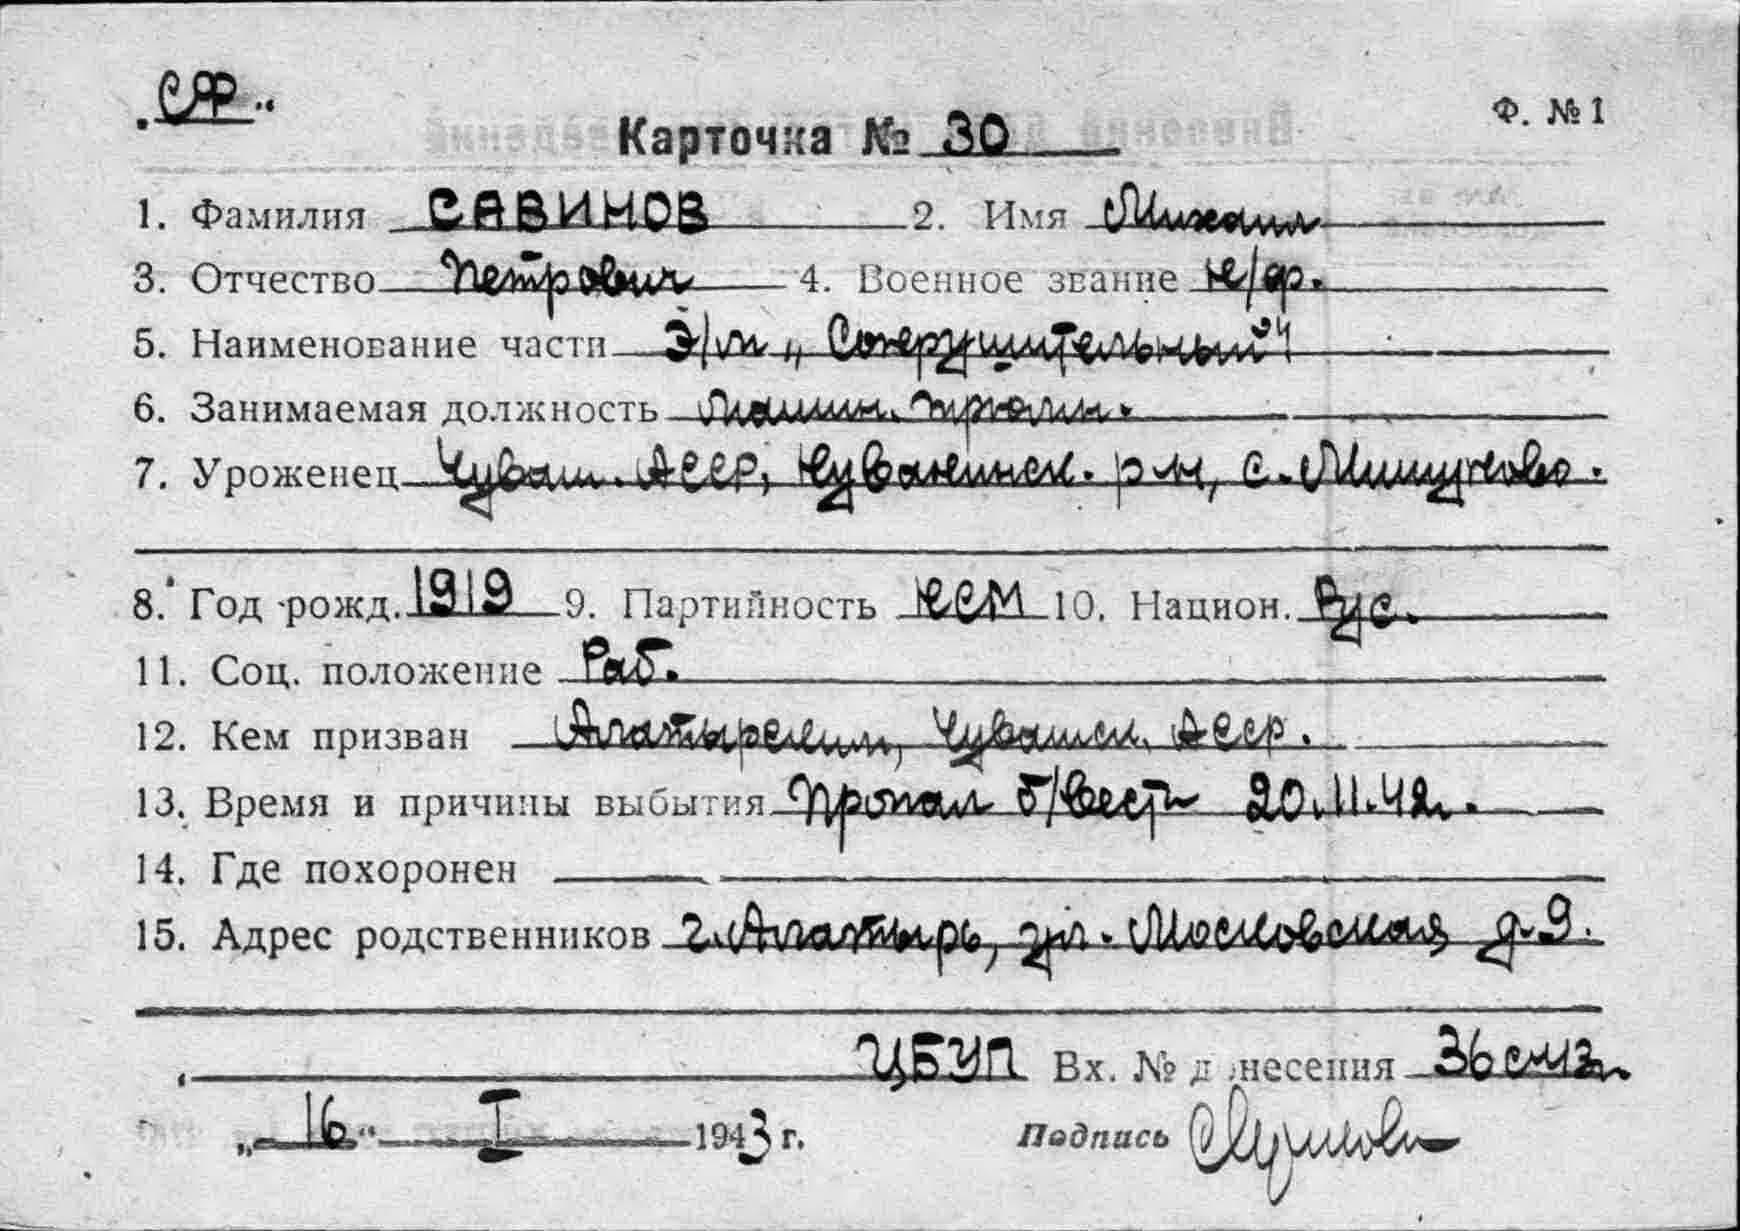 „СФ“
Ф. № 1
Карточка № 30
1. Фамилия САВИНОВ 2. Имя Михаил
3. Отчество Петрович 4. Военное звание к/ф.
5. Наименование части Э/м „Сокрушительный“
6. Занимаемая должность Машин. трюмн.
7. Уроженец Чуваш. АССР, Кувакинск. р-н, с.
8. Год рожд. 1919 9. Партийность ВЛКСМ 10. Национ. Рус.
11. Соц. положение Раб.
12. Кем призван Алатырским, Чувашск. АССР.
13. Время и причины выбытия Пропал б/вести 20.11.42г.
14. Где похоронен
15. Адрес родственников г. Алатырь, ул. Московская д. 9.
ЦБУП Вх. № донесения
„16“ I 1943 г. Подпись